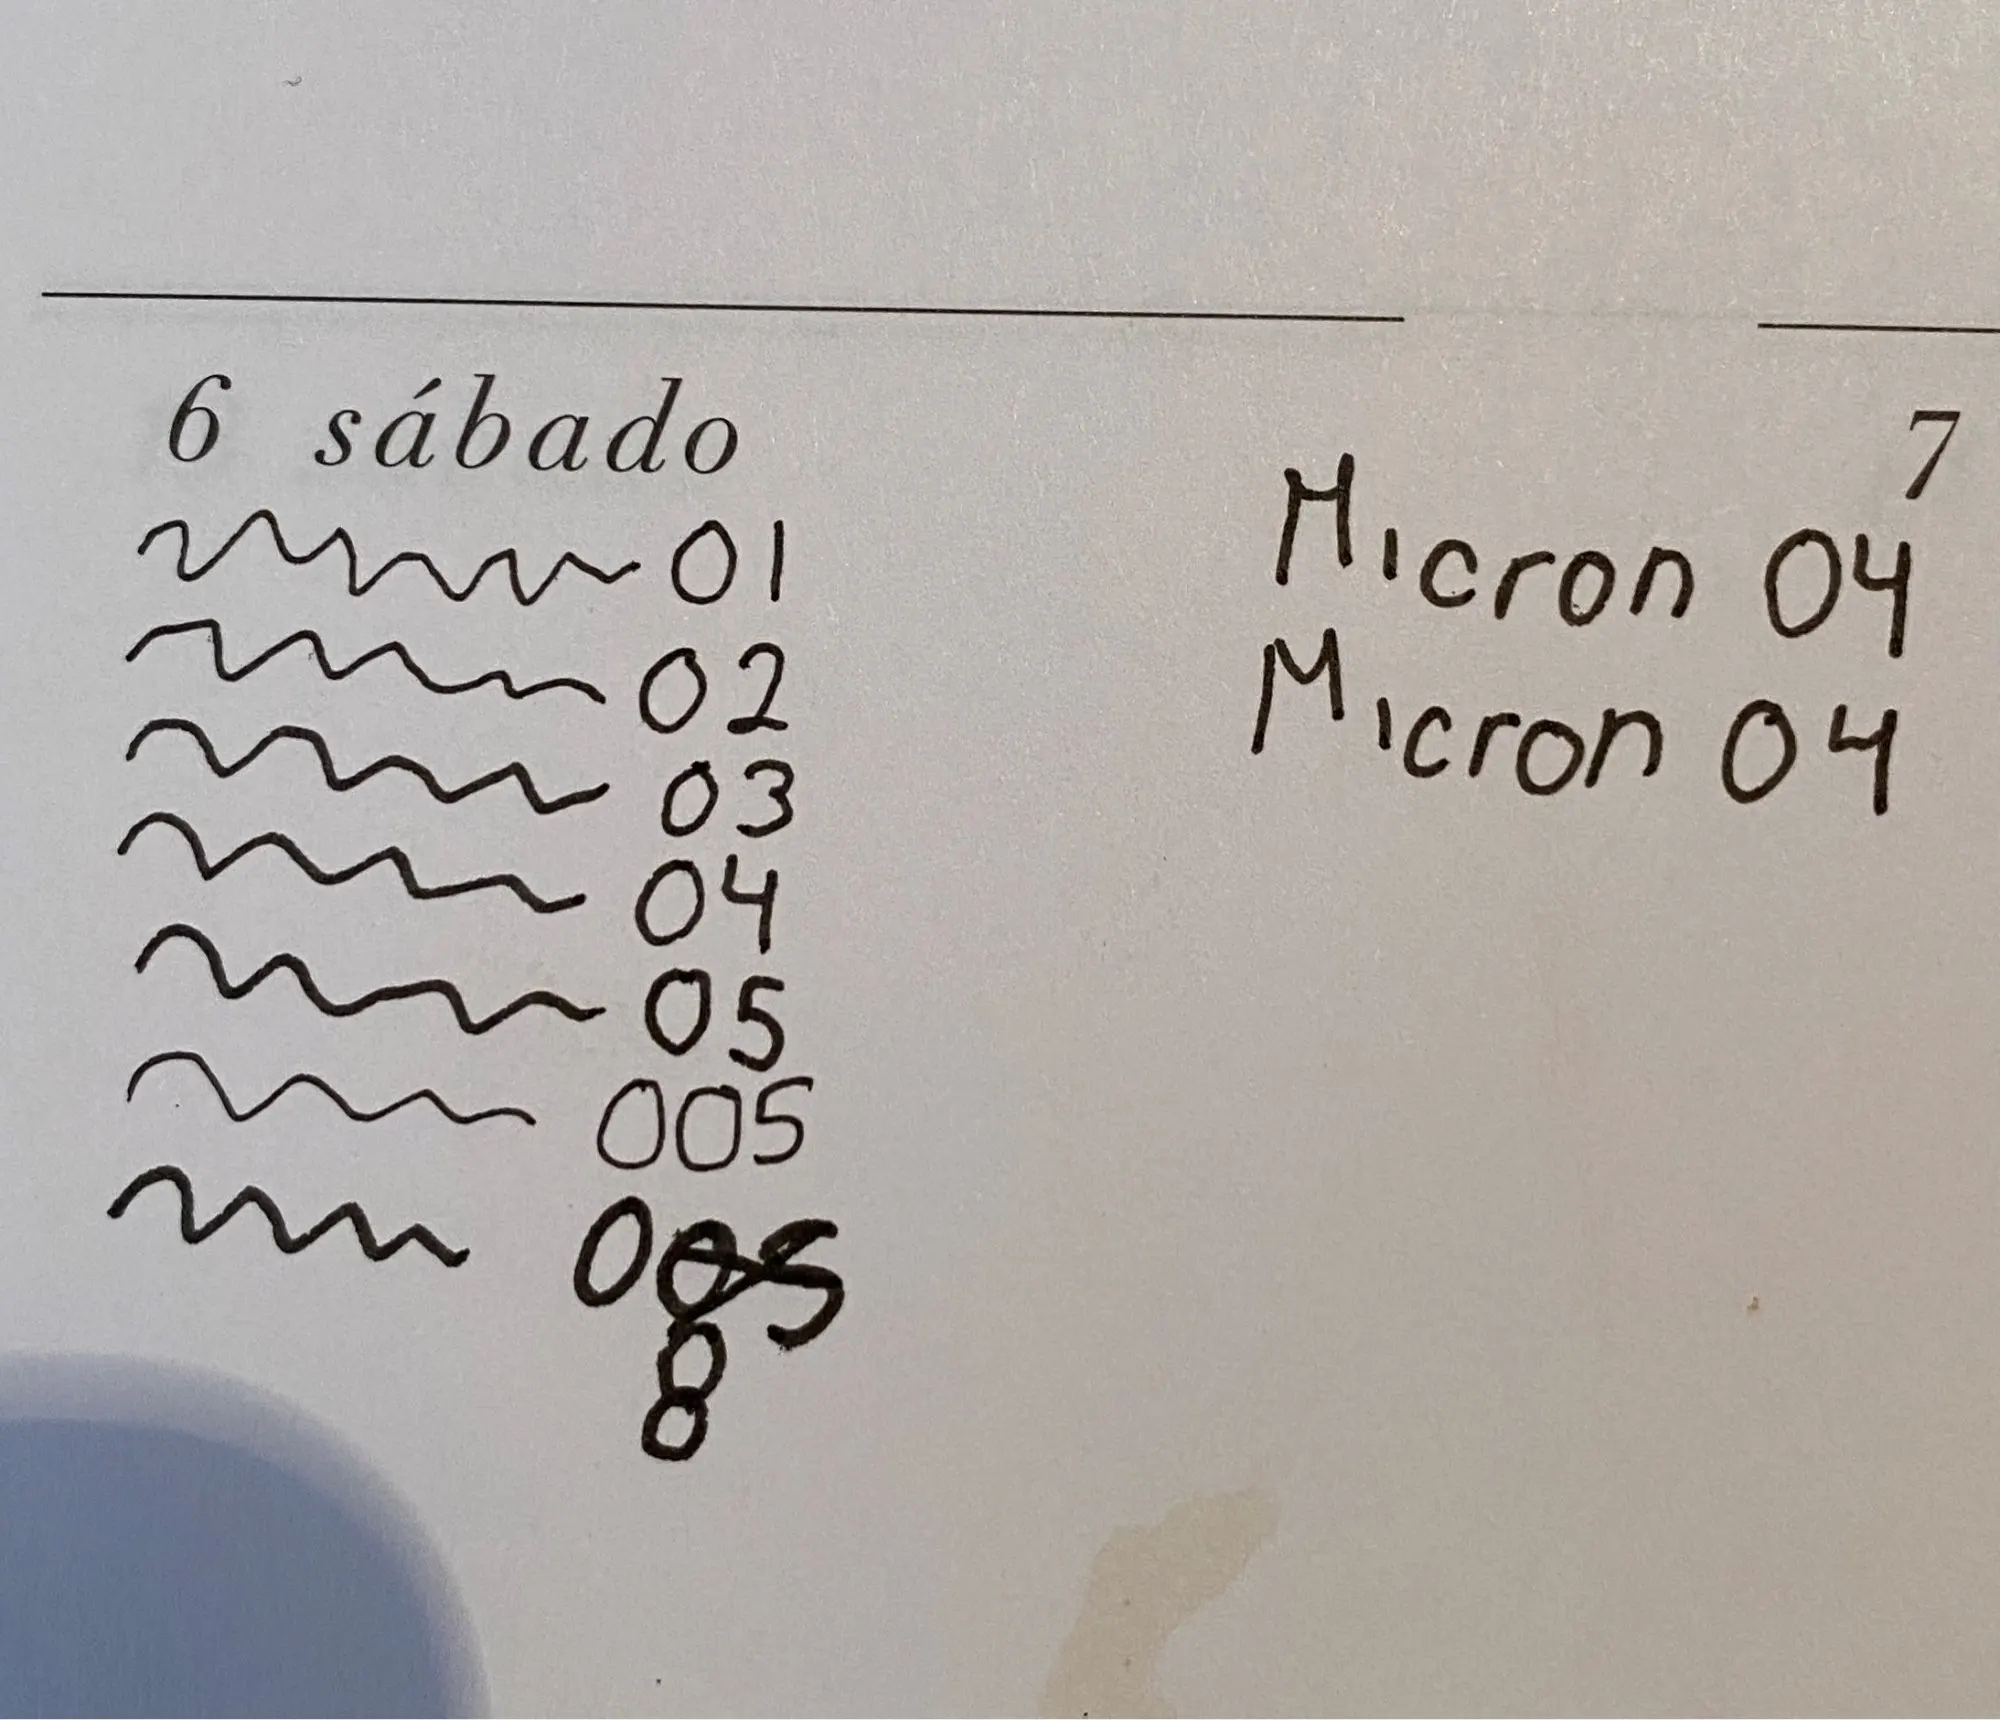 6 sábado
7
01
02
03
04
05
005
0
8
Micron 04
Micron 04